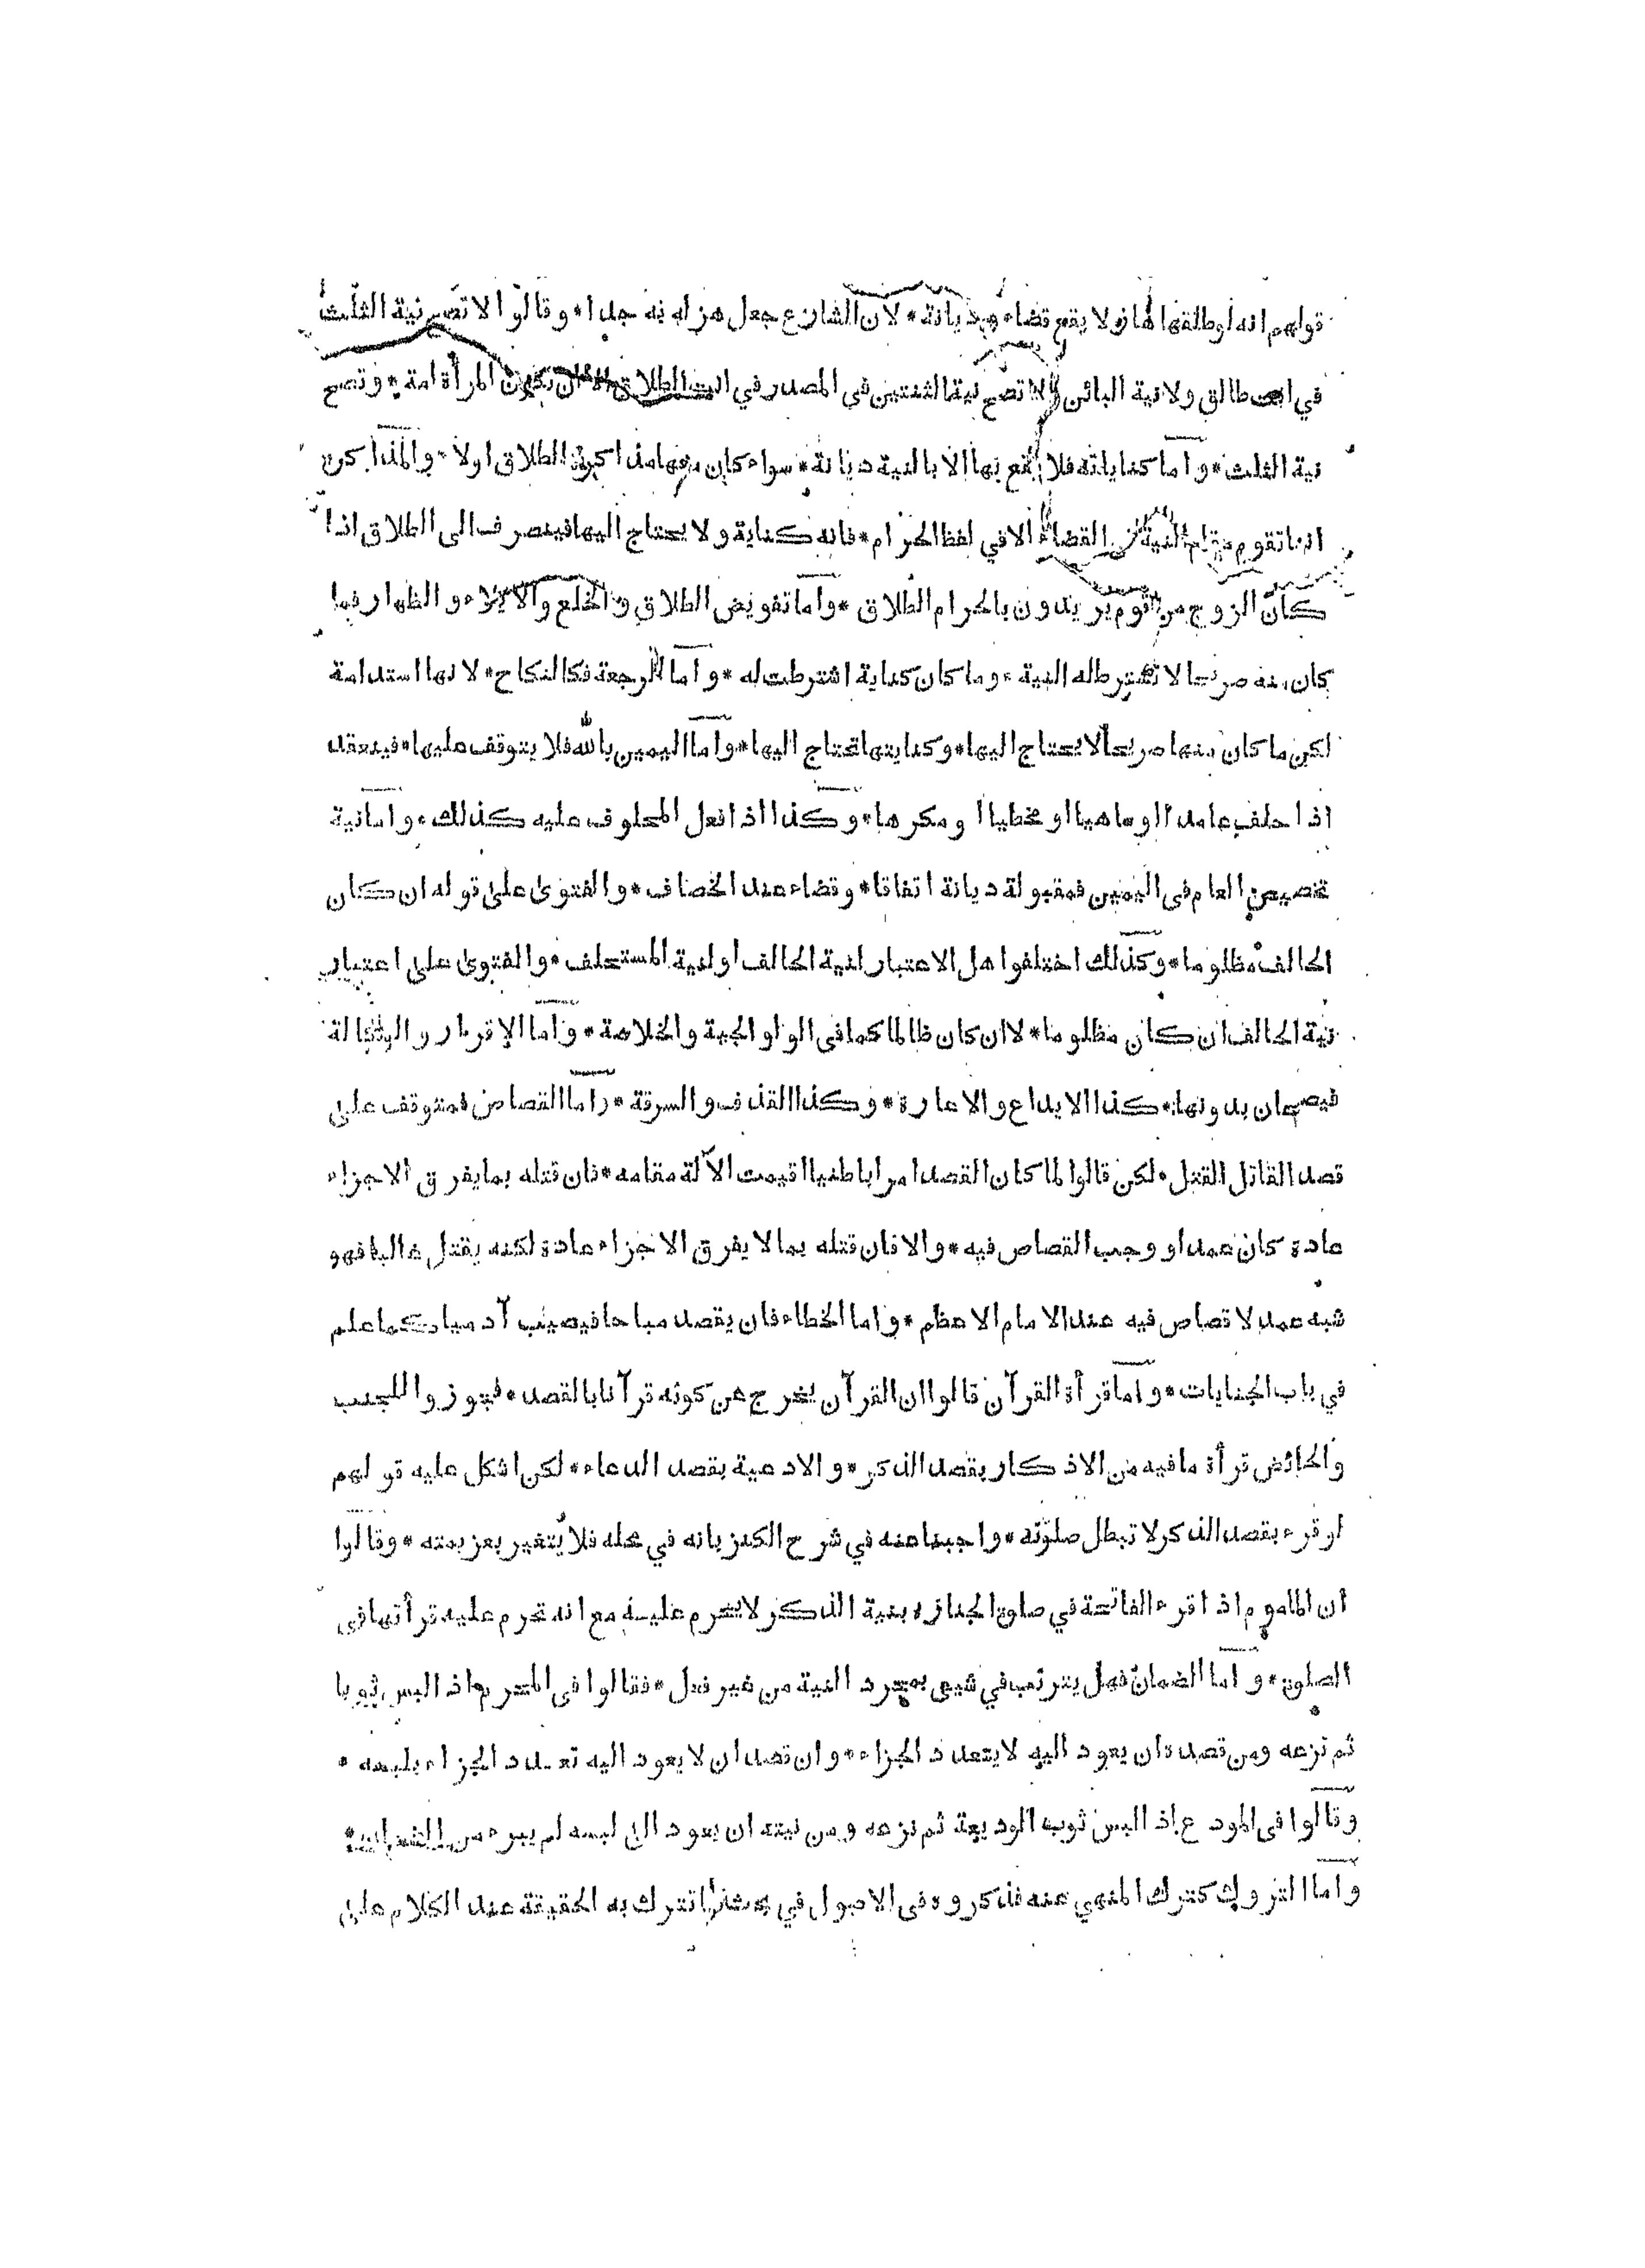 قولهم انه لو طلقها هازلا يقع قضاء وديانة * لان الشارع جعل هزله به جدا * وقالوا لا تصح نية الثلث
في انت طالق ولا نية البائن ولا تصح نية الثنتين فى المصدر في انت الطلاق الا ان تكون المرأة امة * وتصح
نية الثلث * واما كناياته فلا يقع بها الا بالنية ديانة * سواء كان معها مذاكرة الطلاق اولا * والمذاكرة
انما تقوم مقام النية في القضاء الا في لفظ الحرام * فانه كناية ولا يحتاج اليها فينصرف الى الطلاق اذا
كان الزوج من قوم يريدون بالحرام الطلاق * واما تفويض الطلاق والخلع والايلاء والظهار فما
كان منه صريحا لا تشترط له النية * وما كان كناية اشترطت له * واما الرجعة فكالنكاح * لانها استدامة
لكن ما كان منها صريحا لا يحتاج اليها * وكنايتها تحتاج اليها * واما اليمين بالله فلا يتوقف عليها * فينعقد
اذا حلف عامدا او ساهيا او مخطيا او مكرها * وكذا اذا فعل المحلوف عليه كذلك * واما نية
تخصيص العام فى اليمين فمقبولة ديانة اتفاقا * وقضاء عند الخصاف * والفتوى على قوله ان كان
الحالف مظلوما * وكذلك اختلفوا هل الاعتبار لنية الحالف او لنية المستحلف * والفتوى على اعتبار
نية الحالف ان كان مظلوما * لا ان كان ظالما كما فى الولوالجية والخلاصة * واما الاقرار والوكالة
فيصحان بدونها * كذا الايداع والاعارة * وكذا القذف والسرقة * واما القصاص فمتوقف على
قصد القاتل القتل * لكن قالوا لما كان القصد امرا باطنيا اقيمت الآلة مقامه * فان قتله بما يفرق الاجزاء
عادة كان عمدا ووجب القصاص فيه * والا فان قتله بما لا يفرق الاجزاء عادة لكنه يقتل غالبا فهو
شبه عمد لا قصاص فيه عند الامام الاعظم * واما الخطاء فان يقصد مباحا فيصيب آدميا كما علم
في باب الجنايات * واما قرأة القرآن قالوا ان القرآن يخرج عن كونه قرآنا بالقصد * فجوزوا للجنب
والحائض قرأة ما فيه من الاذكار بقصد الذكر * والادعية بقصد الدعاء * لكن اشكل عليه قولهم
لو قرء بقصد الذكر لا تبطل صلوته * واجبنا عنه في شرح الكنز بانه في محله فلا يتغير بعزيمته * وقالوا
ان المأموم اذا قرء الفاتحة في صلوة الجنازه بنية الذكر لا يحرم عليه مع انه تحرم عليه قرأتها فى
الصلوة * واما الضمان فهل يترتب في شيئ بمجرد النية من غير فعل * فقالوا فى المحرم اذا لبس ثوبا
ثم نزعه ومن قصده ان يعود اليه لا يتعدد الجزاء * وان قصد ان لا يعود اليه تعدد الجزاء بلبسه *
وقالوا فى المودع اذا لبس ثوب الوديعة ثم نزعه ومن نيته ان يعود الى لبسه لم يبرء من الضمان *
واما التروك كترك المنهي عنه فذكروه فى الاصول في بحث ما تترك به الحقيقة عند الكلام على